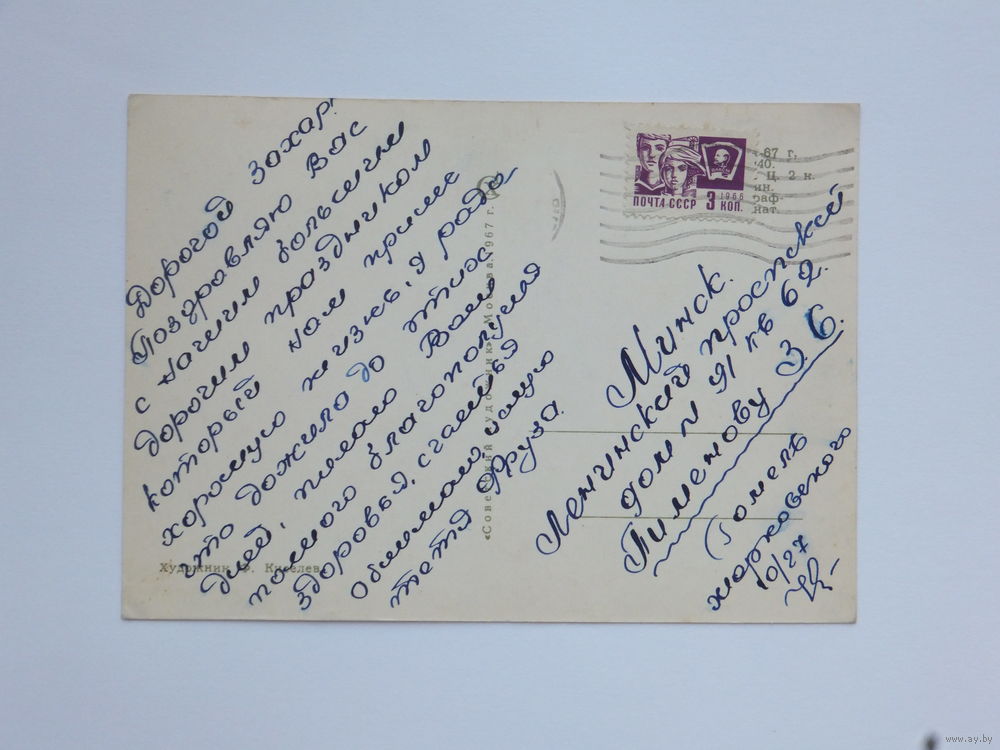 Дорогой Захар!
Поздравляю Вас
с нашим большим
дорогим праздником
который нам принес
хорошую жизнь, я рада
что дожила до этих
дней, желаю Вам
полного благополучия
здоровья, счастья
Обнимаю целую
тетя Фруза.
Художник Ф. Киселев
«Советский художник» Москва 1967 г.
67 г.
40.
Ц. 2 к.
ин.
раф-
нат.
ПОЧТА СССР 3 КОП.
1966
Минск.
Ленинский проспект
дом 91 кв 62.
Пименову З С.
Гомель
жарковского
10/27
www.ay.by